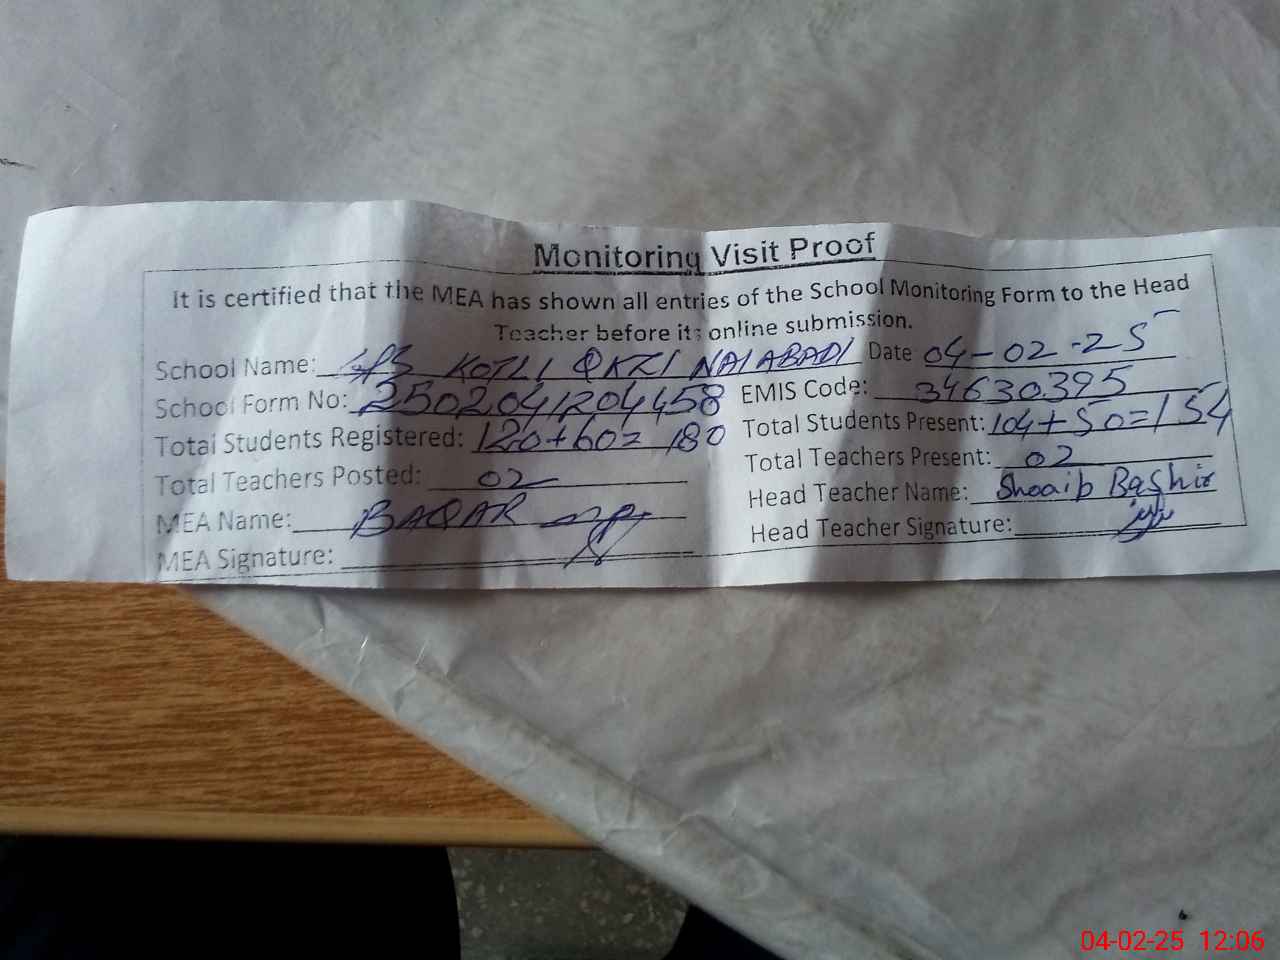 Monitoring Visit Proof
It is certified that the MEA has shown all entries of the School Monitoring Form to the Head
Teacher before its online submission.
School Name: GPS KOTLI QKZI NAIABADI Date 04-02-25
School Form No: 2502041204458 EMIS Code: 34630395
Total Students Registered: 120+60= 180 Total Students Present: 104+50=154
Total Teachers Posted: 02 Total Teachers Present: 02
MEA Name: BAQAR Head Teacher Name: Shoaib Bashir
MEA Signature: Head Teacher Signature:
04-02-25 12:06